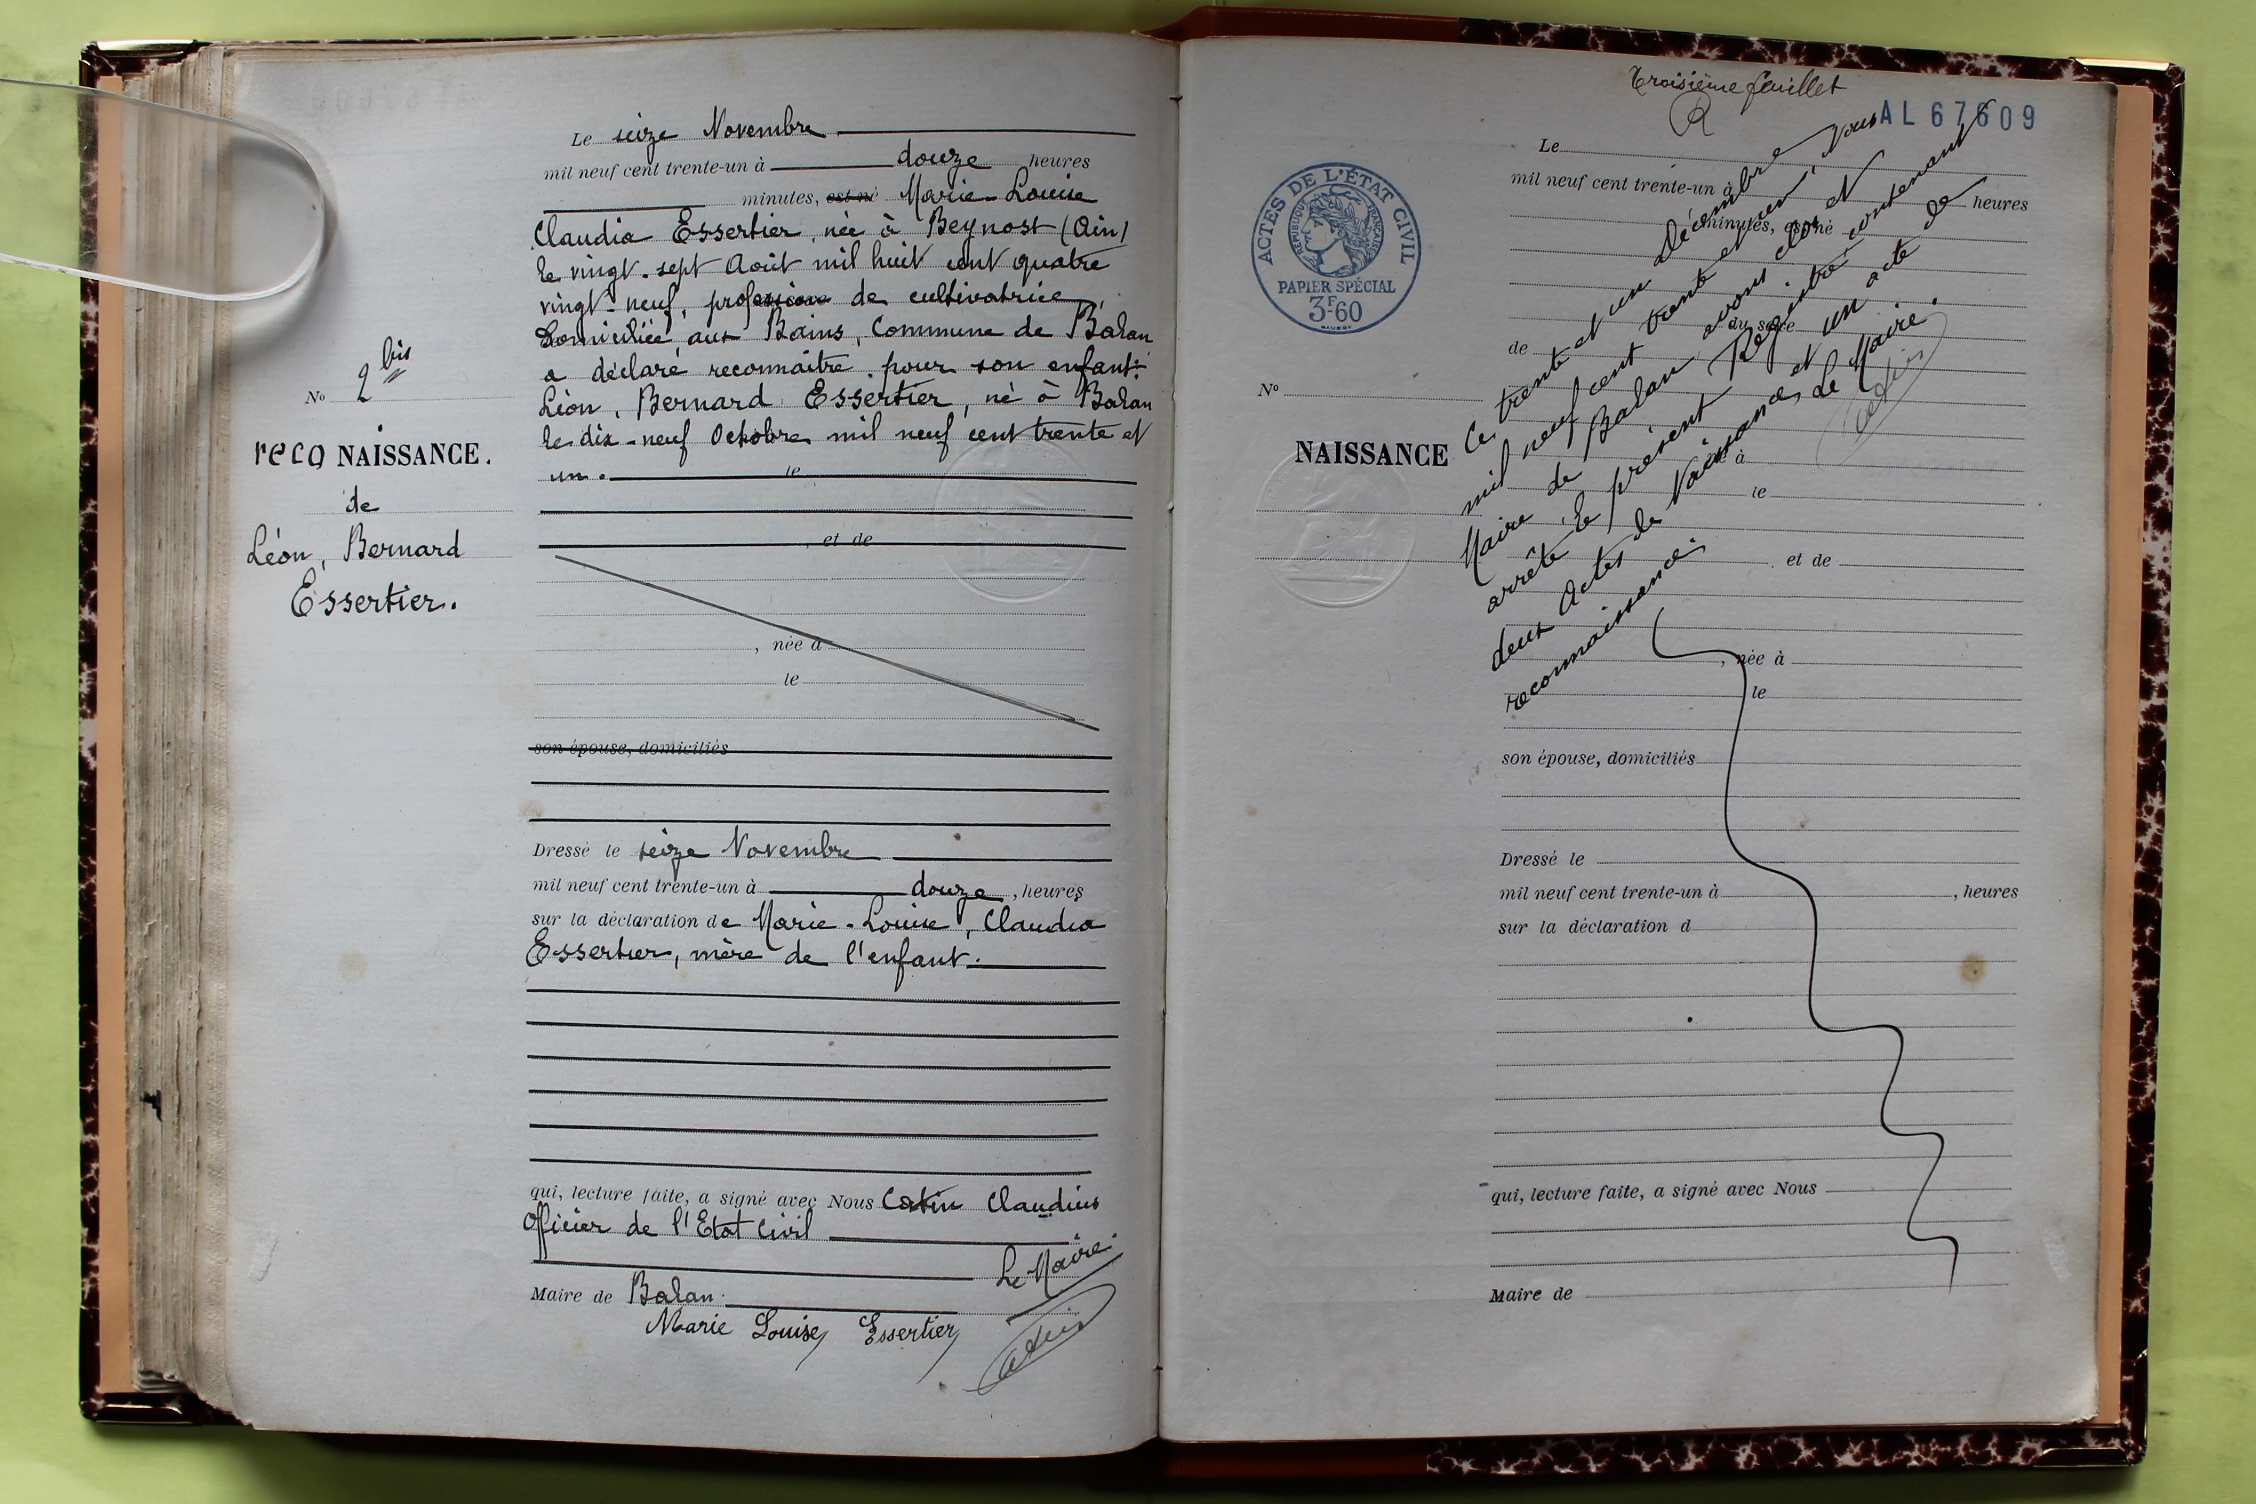 Le seize Novembre
mil neuf cent trente-un à douze heures
minutes, est né Marie-Louise
Claudia Essertier, née à Beynost (Ain)
le vingt-sept Août mil huit cent quatre
vingt-neuf, profession de cultivatrice,
Domiciliée aux Bains, Commune de Balan
a déclaré reconnaître pour son enfant:
Léon, Bernard Essertier, né à Balan
le dix-neuf Octobre mil neuf cent trente et
un. le
, et de
, née à
le
son épouse, domiciliés
Dressé le seize Novembre
mil neuf cent trente-un à douze, heures
sur la déclaration de Marie-Louise, Claudia
Essertier, mère de l'enfant.
qui, lecture faite, a signé avec Nous Catin Claudius
Officier de l'Etat Civil
Le Maire.
Maire de Balan.
Marie Louise Essertier
No 2 bis
reco NAISSANCE.
de
Léon, Bernard
Essertier.
Troisième feuillet
AL 67609
ACTES DE L'ÉTAT CIVIL
RÉPUBLIQUE FRANÇAISE
PAPIER SPÉCIAL
3F-60
No
NAISSANCE
Le
mil neuf cent trente-un à
heures
minutes, est né
du sexe
de
à
le
et de
, née à
le
son épouse, domiciliés
Dressé le
mil neuf cent trente-un à , heures
sur la déclaration d
qui, lecture faite, a signé avec Nous
Maire de
Ce trente et un Décembre
mil neuf cent trente et un, Nous
Maire de Balan, avons clos et
arrêté le présent Registre contenant
deux Actes de Naissances et un acte de
reconnaissance.
Le Maire.